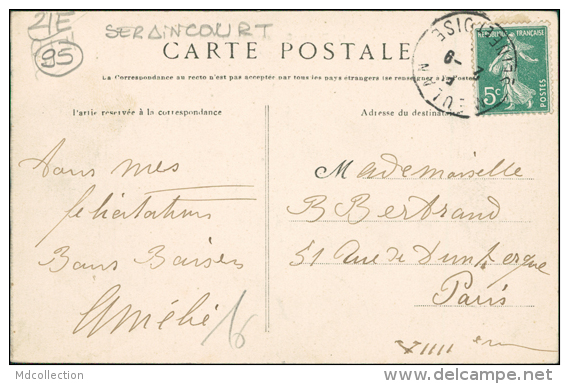 21E
95
SERAINCOURT
CARTE POSTALE
La Correspondance au recto n'est pas acceptée par tous les pays étrangers (se renseigner à la Poste)
RÉPUBLIQUE FRANÇAISE
5c
POSTES
MEULAN
SEINE-ET-OISE
Partie réservée à la correspondance
Adresse du destinataire
Tous mes
félicitations
Bons Baisers
Amélie
16
Mademoiselle
B Bertrand
51 Rue de Dunkerque
Paris
XIIII ème
Mdcollection
www.delcampe.net